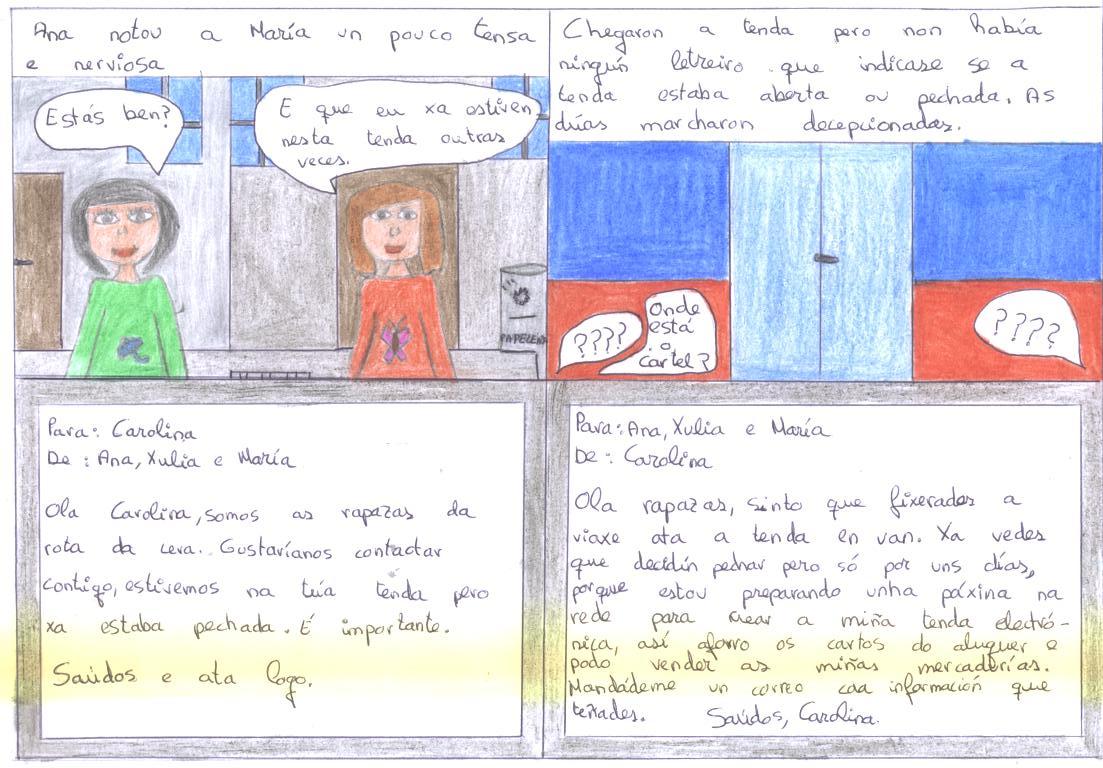 Ana notou a María un pouco tensa
e nerviosa
Estás ben?
E que eu xa estiven
nesta tenda outras
veces.
PAPELERA
Chegaron a tenda pero non había
ningún letreiro que indicase se a
tenda estaba aberta ou pechada. As
dúas marcharon decepcionadas.
????
Onde
está
o
cartel?
????
Para: Carolina
De: Ana, Xulia e María
Ola Carolina, somos as rapazas da
rota da cera. Gustaríanos contactar
contigo, estivemos na túa tenda pero
xa estaba pechada. É importante.
Saúdos e ata logo.
Para: Ana, Xulia e María
De: Carolina
Ola rapazas, sinto que fixerades a
viaxe ata a tenda en van. Xa vedes
que decidín pechar pero só por uns días,
porque estou preparando unha páxina na
rede para crear a miña tenda electró-
nica, así aforro os cartos do aluguer e
podo vender as miñas mercaderías.
Mandádeme un correo coa información que
teñades. Saúdos, Carolina.